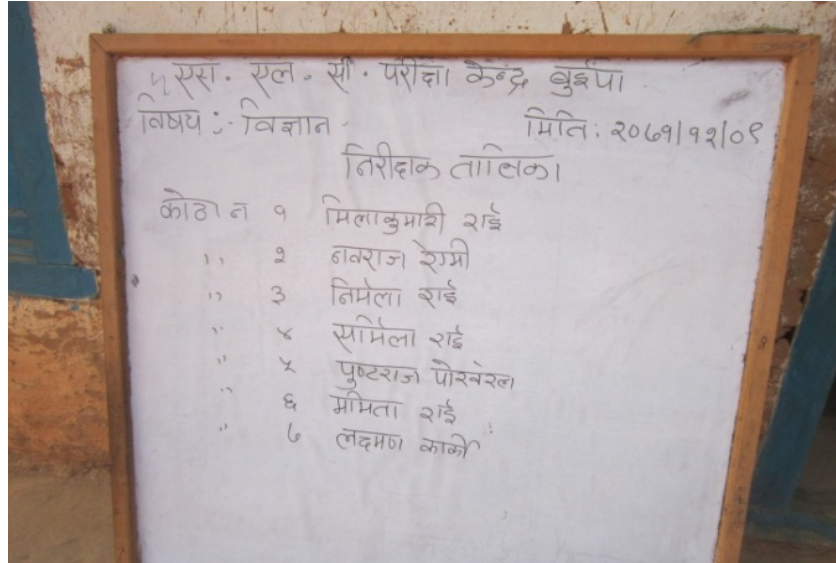 एस. एल. सी. परीक्षा केन्द्र बुईपा
विषय :- विज्ञान
मिति: २०७१/१२/०९
निरीक्षक तालिका
कोठा न १ मिलाकुमारी राई
,, २ नवराज रेग्मी
,, ३ निर्मला राई
,, ४ सर्मिला राई
,, ५ पुष्टराज पोखरेल
,, ६ ममिता राई
,, ७ लक्ष्मण कार्की